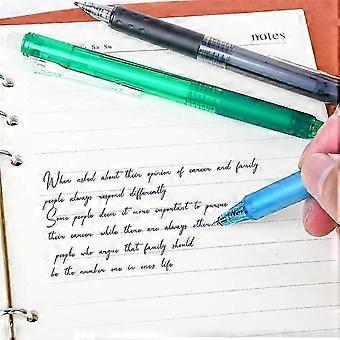 notes
Sa Su
When asked about their opinion of career and family
people always respond differently
Some people deem it more important to pursue
their career while there are always other
people who argue that family should
be the number one in ones life